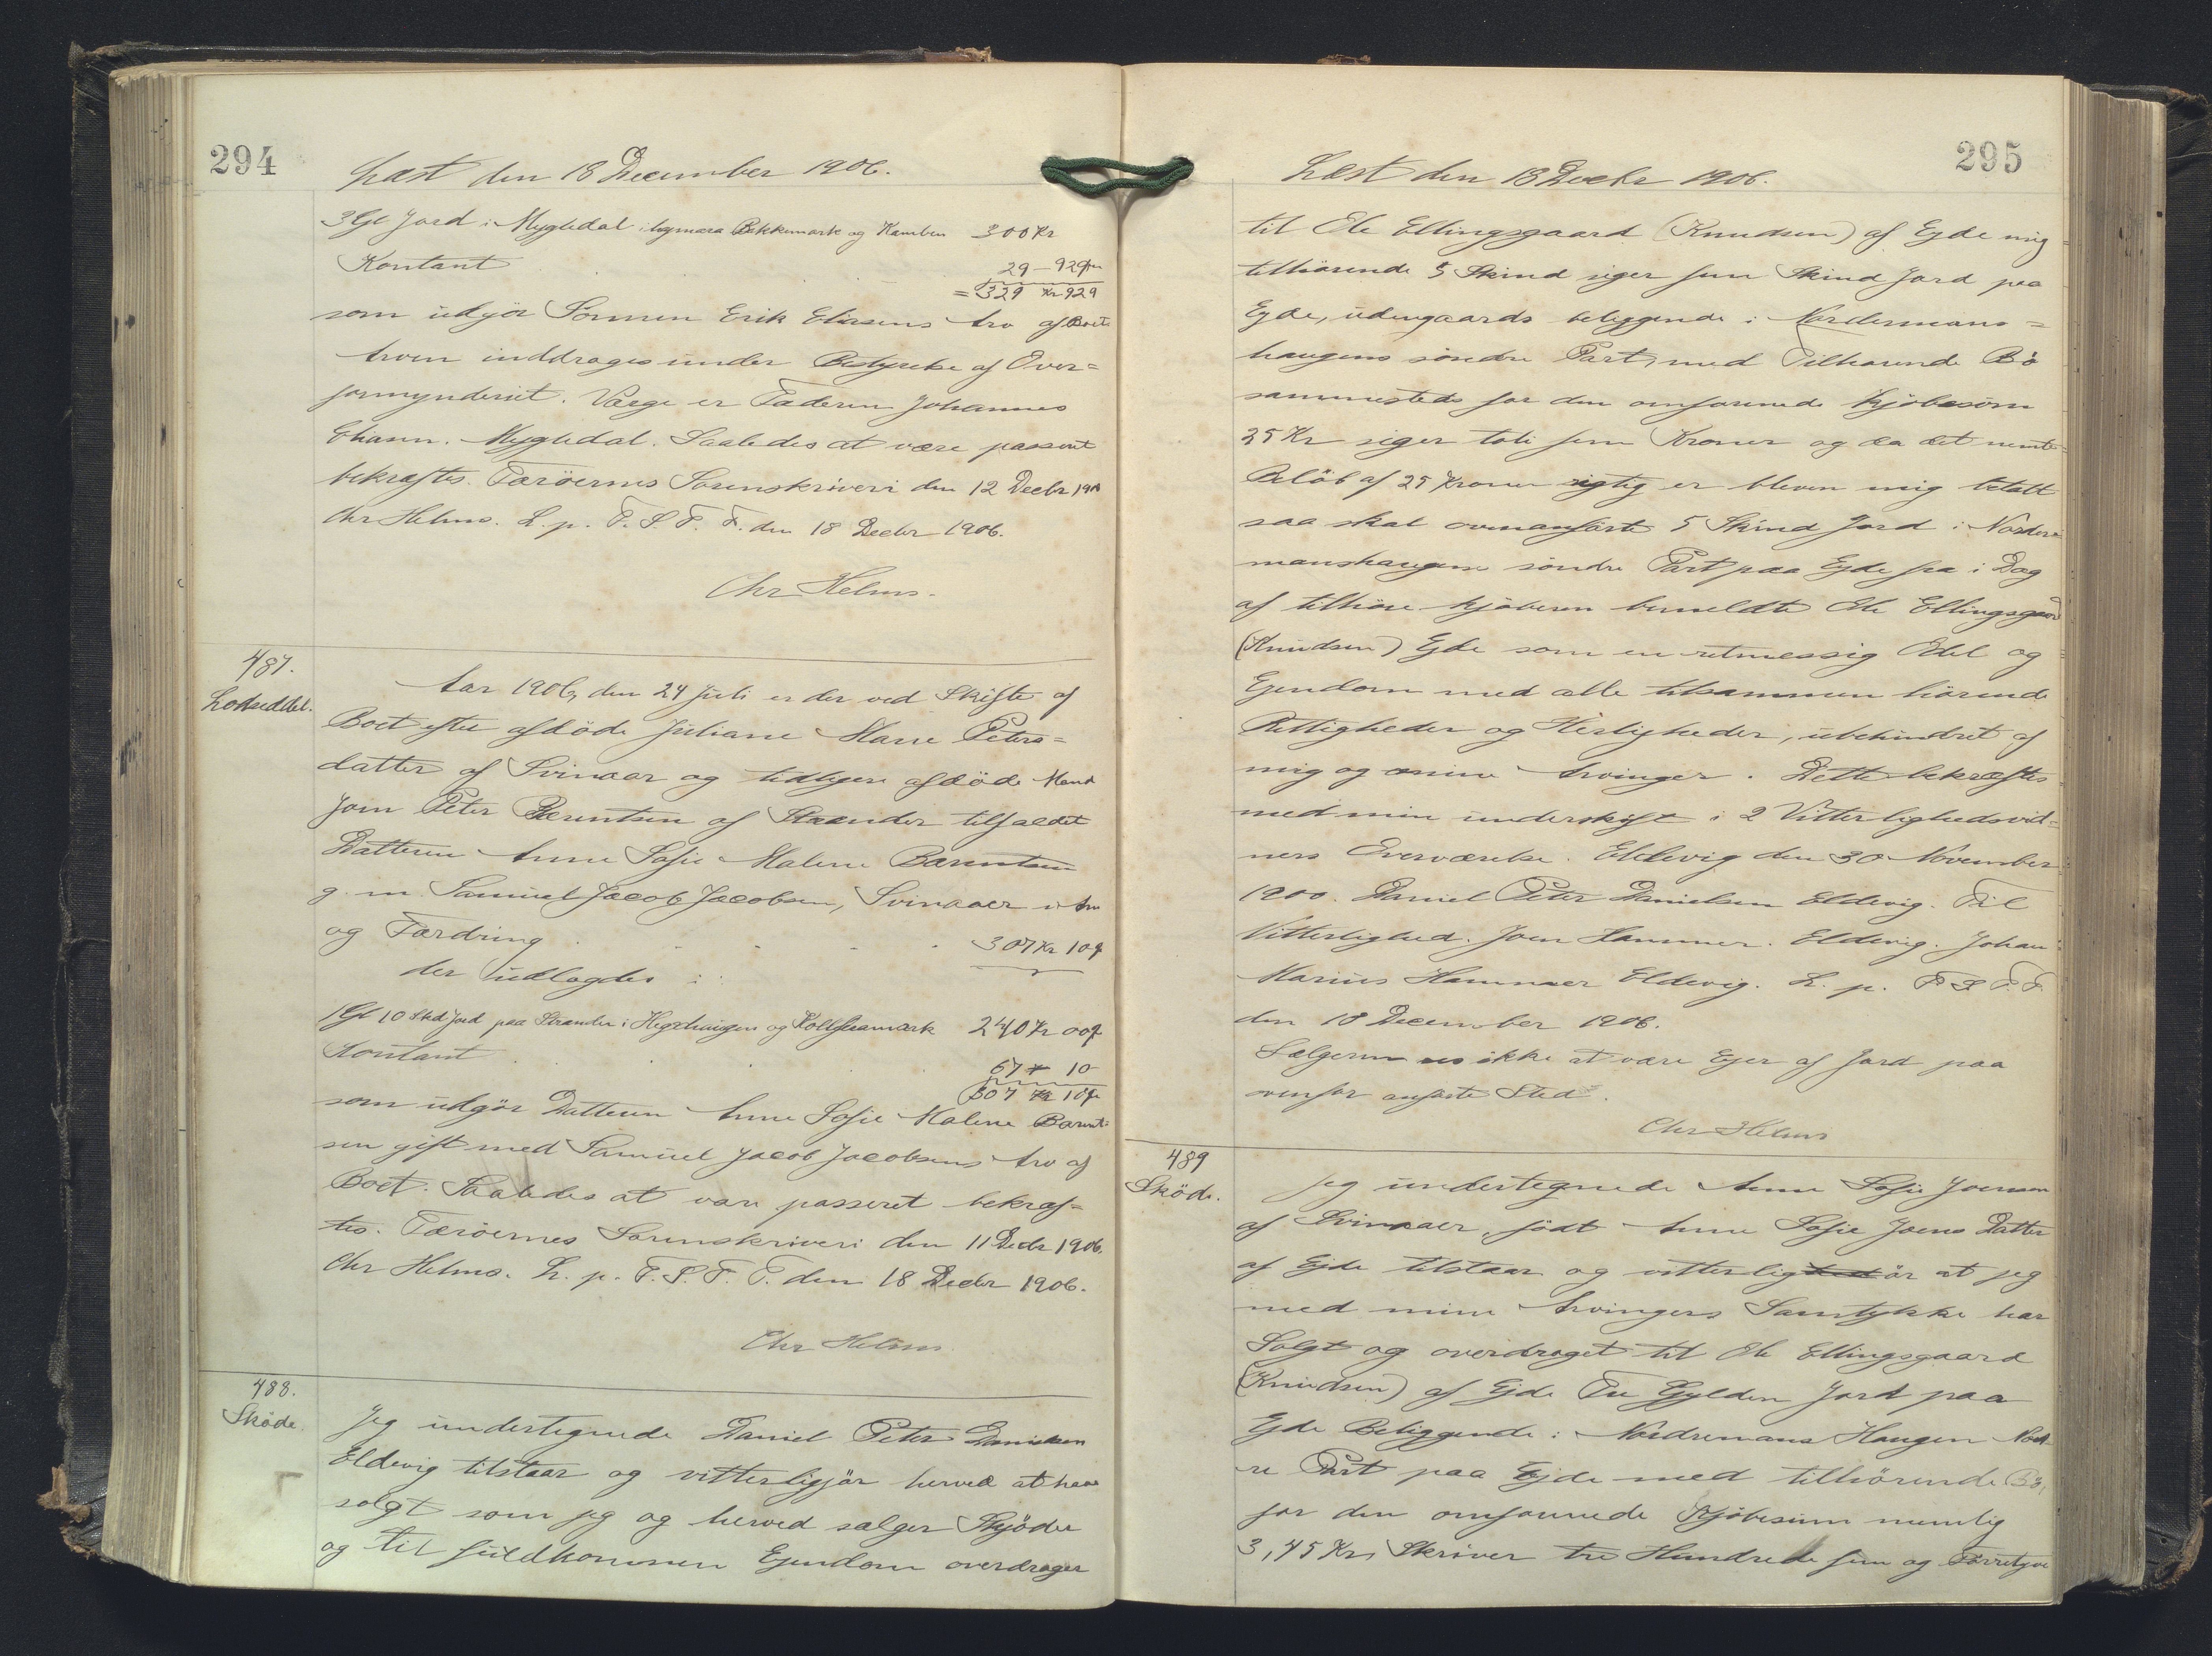 294
Læst den 18 December 1906.
3 Gl Jord i Mygledal i Bekkemark og Kamben 300 Kr
Kontant 29 – 92
= 329 Kr 92
som udgör Sönnen Erik Eliasens Arv af Boet.
Arven inddrages under Bestyrelse af Over=
formynderiet. Værge er Faderen Johannes
Eliasen. Mygledal. Saaledes at være passeret
bekræftes. Færöernes Sorenskriveri den 12 Decbr 1906
Chr Helms. L. p. F. S. T. F. den 18 Decbr 1906.
Chr Helms.
487.
Lodseddel.
Aar 1906, den 24 Juli er der ved Skifte af
Boet efter afdöde Juliane Marie Peters=
datter af Svinaar og tidligere afdöde Mand
Joen Peter Barentsen af Strænder tilfaldet
Datteren Anne Sofie Malene Barentsen
g. m. Samuel Jacob Jacobsen, Svinaaer i Arv
og Fordring 307 Kr 10
der udlagdes i:
1 Gl 10 Skd Jord paa Strænder i Hegrehaugen og 240 Kr 00
Kontant
67 – 10
307 Kr 10
som udgör Datteren Anne Sofie Malene Barent=
sen gift med Samuel Jacob Jacobsens Arv af
Boet. Saaledes at være passeret bekræf=
tes. Færöernes Sorenskriveri den 11 Decbr 1906.
Chr Helms. L. p. F. S. T. F. den 18 Decbr 1906.
Chr Helms
488.
Sköde
Jeg undertegnede Daniel Peter Danielsen
Eldevig tilstaar og vitterligjör herved at have
solgt som jeg og herved sælger Skjöder
og til fuldkommen Ejendom overdrager
295
Læst den 18 Decbr 1906.
til Ole Ellingsgaard (Knudsen) af Ejde mig
tilhörende 5 Skind siger fem Skind Jord paa
Ejde, udengaards beliggende i Nordermans=
haugens söndre Part, med Tilhörende Bö
sammesteds for den omforenede Kjöbesum
25 Kr siger tove fem Kroner og da det nevnte
Belöb af 25 Kroner rigtig er bleven mig betalt
saa skal ovenanförte 5 Skind Jord i Norder=
manshaugens söndre Part paa Ejde fra i Dag
af tilhöre Kjöberen bemeldte Ole Ellingsgaard
(Knudsen) Ejde som en retmessig Odel og
Ejendom med alle tilsammen hörende
Rettigheder og Herligheder, ubehindret af
mig og mine Arvinger. Dette bekræftes
med min underskrift i 2 Vitterlighedsvid=
ners Overværelse. Eldevig den 30 November
1900. Daniel Peter Danielsen Eldevig. Til
Vitterlighed. Joen Hammer. Eldevig. Johan
Marius Hammer Eldevig. L. p. F. S. T. F.
den 18 December 1906.
Sælgeren ses ikke at være Ejer af Jord paa
ovenfor anförte Sted.
Chr Helms
489
Sköde.
Jeg undertegnede Anne Sofie Joensen
af Svinaaer, födt Anne Sofie Joens Datter
af Ejde tilstaar og vitterligjör at jeg
med mine Arvingers Samtykke har
Solgt og overdraget til Ole Ellingsgaard
(Knudsen) af Ejde Tre Gylden Jord paa
Ejde Beliggende i Nordremans Haugen Nord
re Part paa Ejde med tilhörende Bö,
for den omforenede Kjöbesum nemlig
3,45 Kr, Skriver tre Hundrede fem og Förretyve